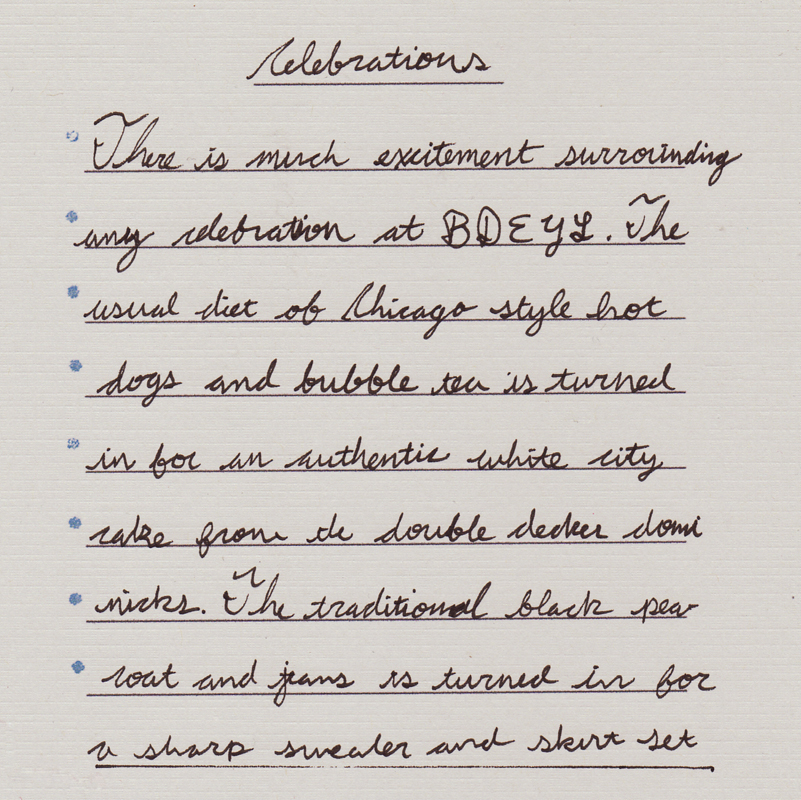 Celebrations
There is much excitement surrounding
any celebration at BDEYL. The
usual diet of Chicago style hot
dogs and bubble tea is turned
in for an authentic white city
cake from the double decker domi
nicks. The traditional black pea
coat and jeans is turned in for
a sharp sweater and skirt set